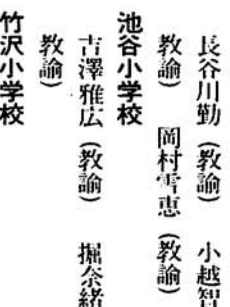 長谷川勤（教諭）　小越智
教諭）　岡村雪恵（教諭）
池谷小学校
吉澤雅広（教諭）　掘奈緒
教諭）
竹沢小学校